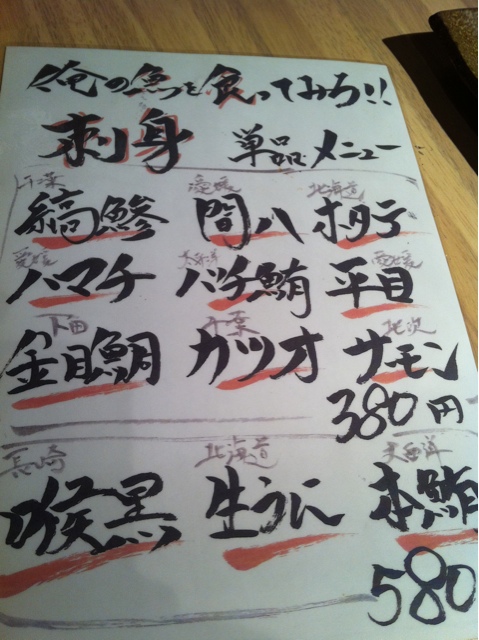 俺の魚を食ってみろ!!
刺身 単品メニュー
千葉 愛媛 北海道
縞鯵 間八 ホタテ
愛媛 愛媛
ハマチ バチ鮪 平目
下田 千葉
金目鯛 カツオ サーモン
380円
長崎 北海道 大西洋
喉黒 生うに 本鮪
580